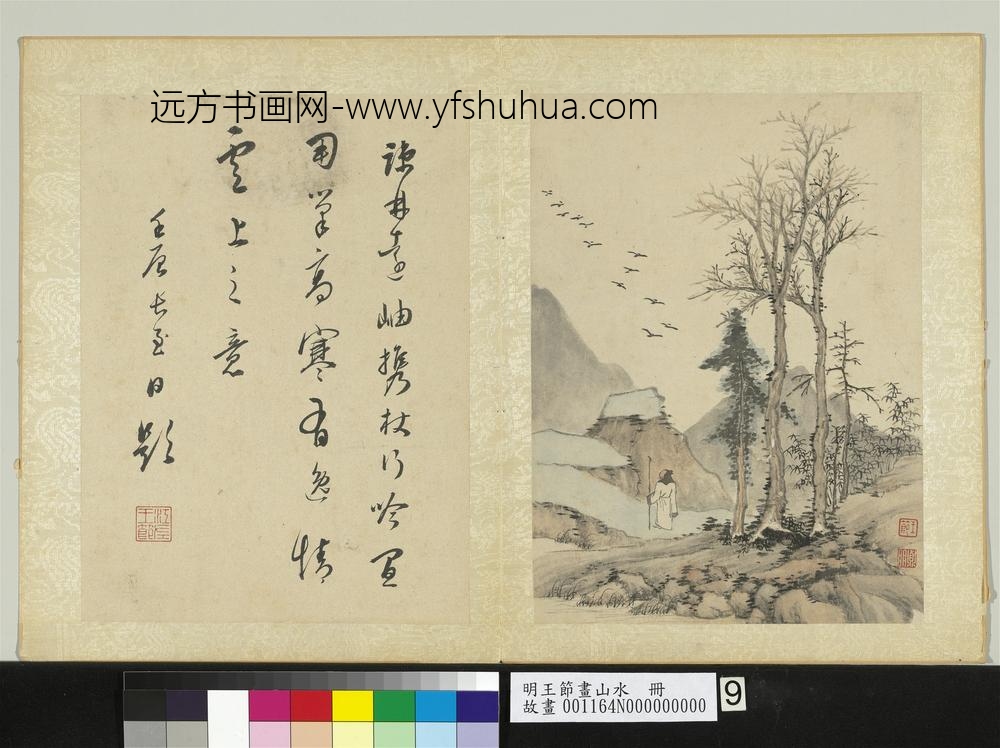 远方书画网-www.yfshuhua.com
疎林遠岫携杖行吟置
用筆高寒有逸情
雲上之意
壬辰長至日題
明王節畫山水 冊
故畫 001164N000000000
9